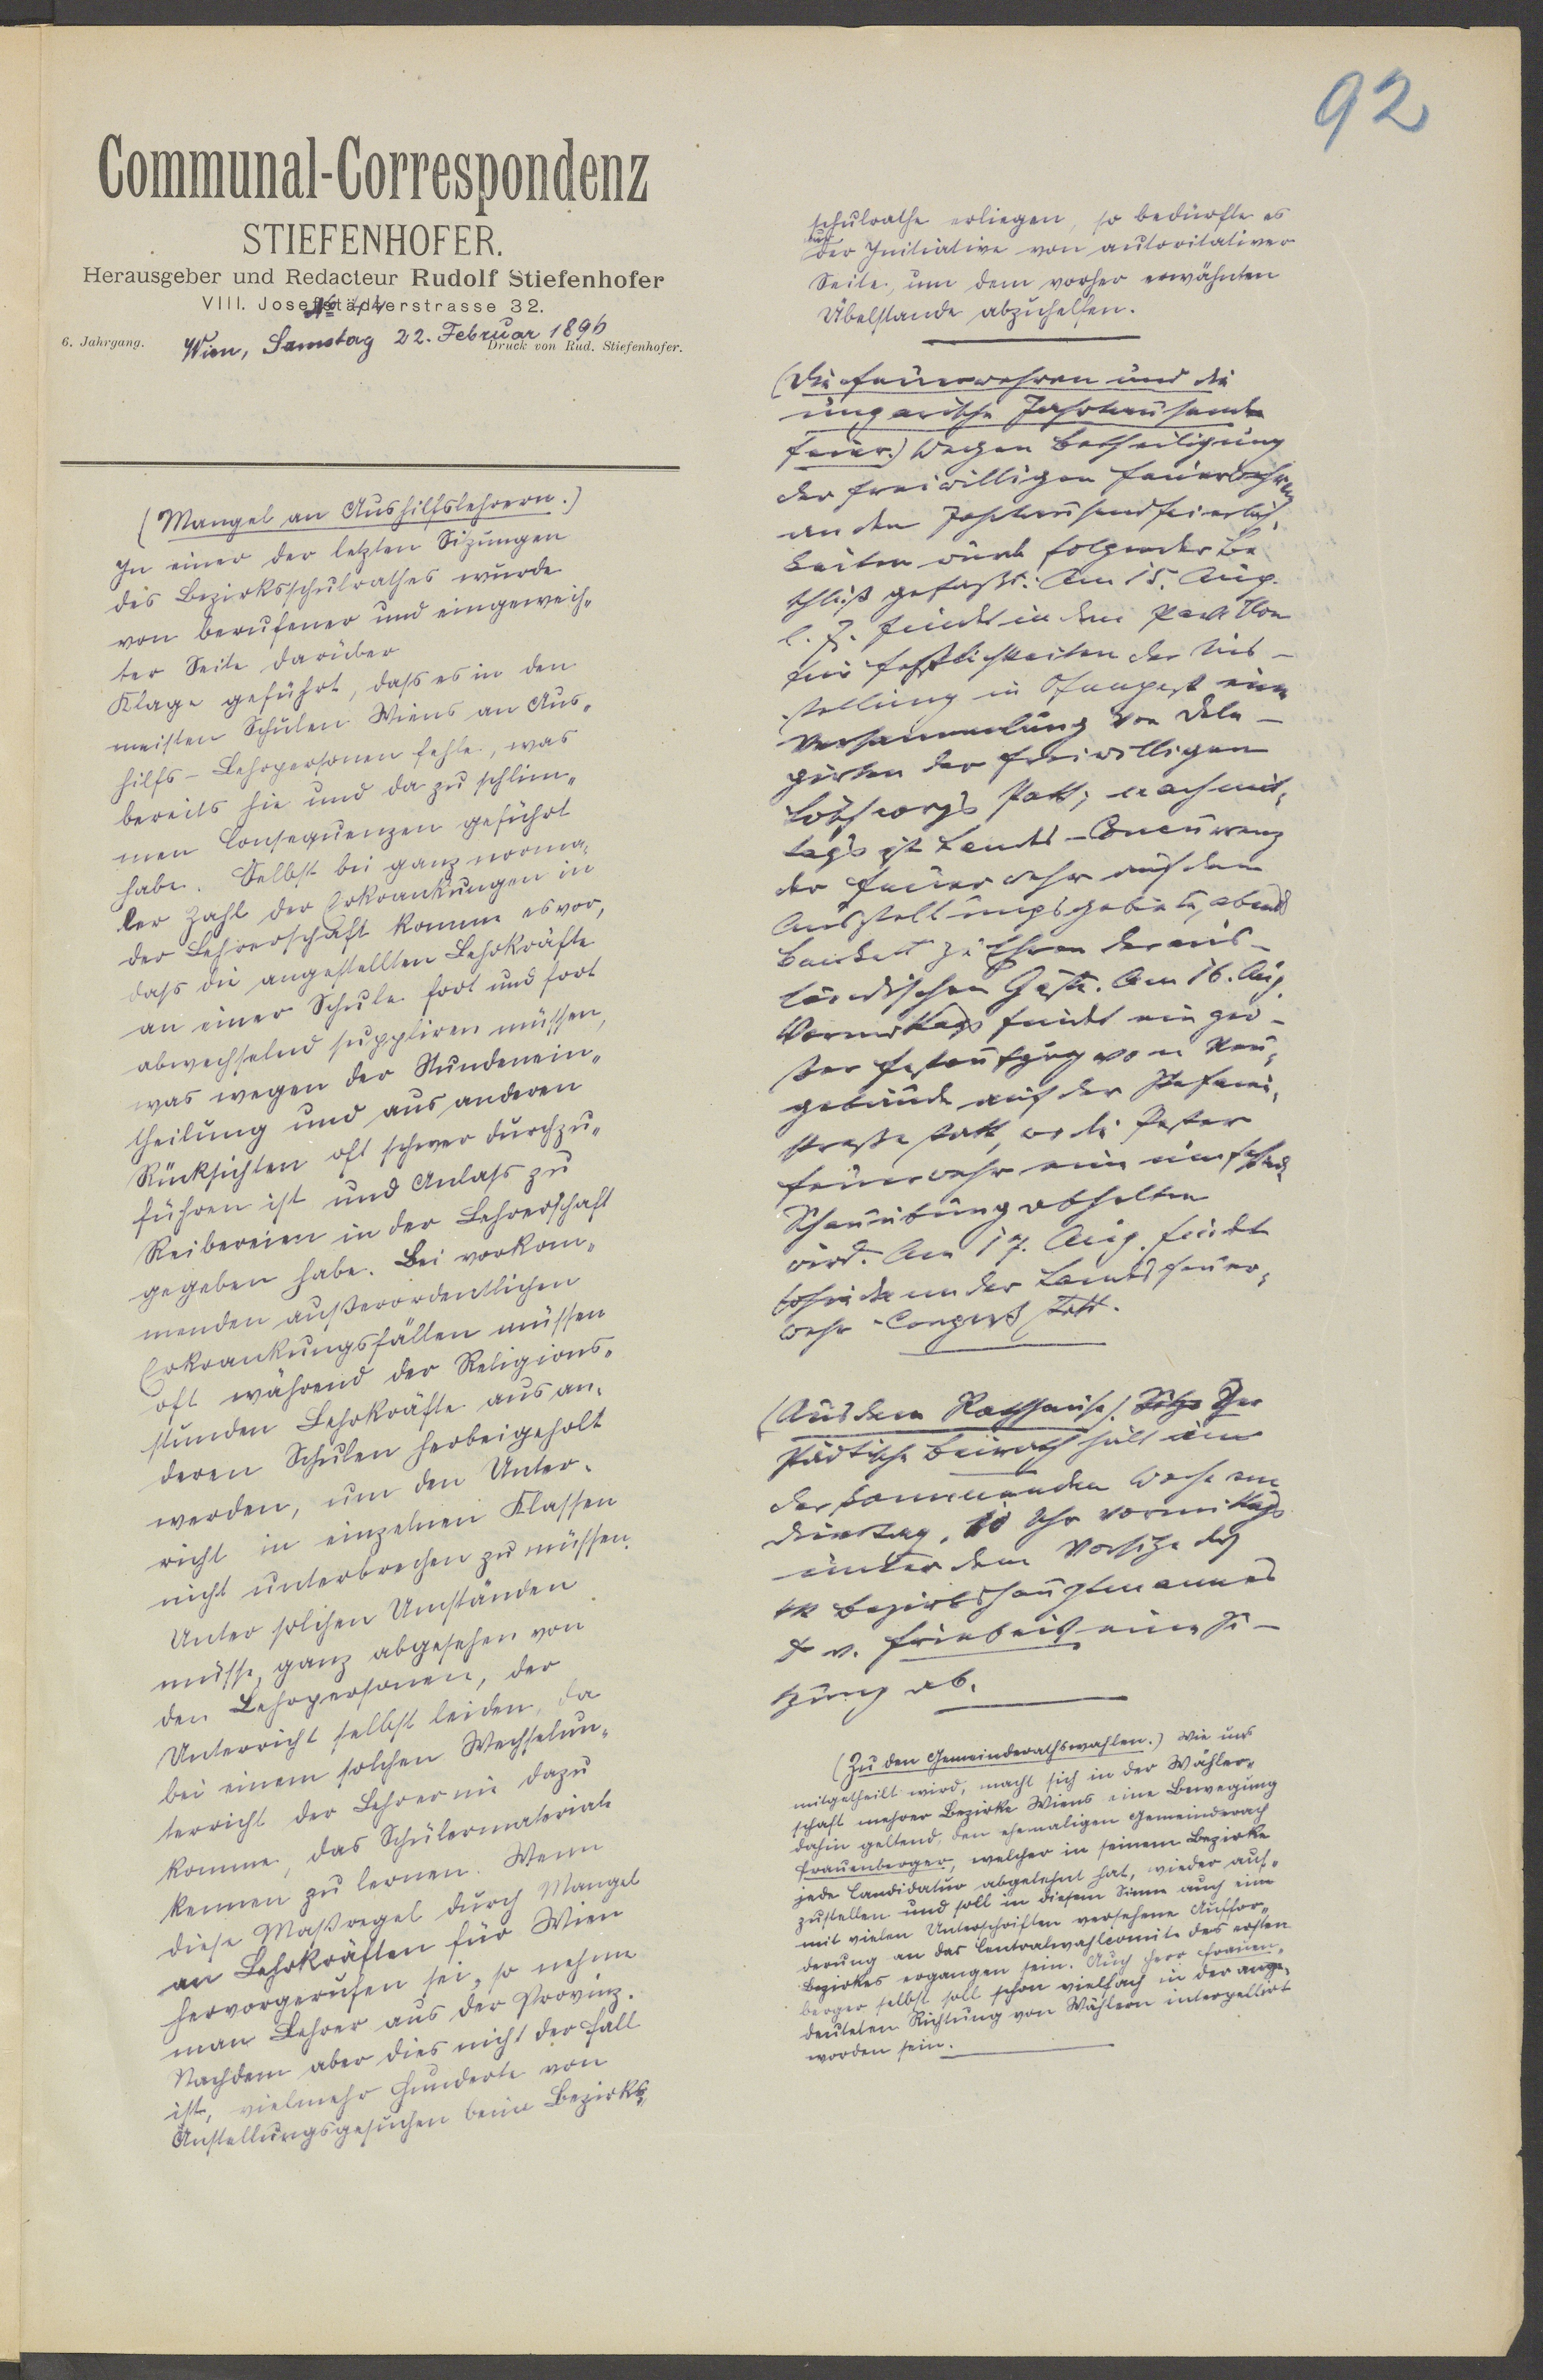 92
Communal-Correspondenz
STIEFENHOFER.
Herausgeber und Redacteur Rudolf Stiefenhofer
VIII. Josefstädterstrasse 32.
No 44
6. Jahrgang. Wien, Samstag 22. Februar 1896
Druck von Rud. Stiefenhofer.
(Mangel an Aushilfslehrern.)
In einer der letzten Sizungen
des Bezirksschulrathes wurde
von berufener und eingeweih-
ter Seite darüber
Klage geführt, dass es in den
meisten Schulen Wiens an Aus-
hilfs-Lehrpersonen fehle, was
bereits hie und da zu schlim-
men Consequenzen geführt
habe. Selbst bei ganz norma-
ler Zahl der Erkrankungen in
der Lehrerschaft komme es vor,
dass die angestellten Lehrkräfte
an einer Schule fort und fort
abwechselnd suppliren müssen,
was wegen der Stundenein-
theilung und aus anderen
Rücksichten oft schwer durchzu-
führen ist und Anlass zu
Reibereien in der Lehrerschaft
gegeben habe. Bei vorkom-
menden außerordentlichen
Erkrankungsfällen müssen
oft während der Religions-
stunden Lehrkräfte aus an-
deren Schulen herbeigeholt
werden, um den Unter-
richt in einzelnen Klassen
nicht unterbrechen zu müssen.
Unter solchen Umständen
müsse, ganz abgesehen von
den Lehrpersonen, der
Unterricht selbst leiden, da
bei einem solchen Wechselun-
terricht der Lehrer nie dazu
komme, das Schülermateriale
kennen zu lernen. Wenn
diese Maßregel durch Mangel
an Lehrkräften für Wien
hervorgerufen sei, so nehme
man Lehrer aus der Provinz.
Nachdem aber dies nicht der Fall
ist, vielmehr Hunderte von
Anstellungsgesuchen beim Bezirks-
schulrathe erliegen, so bedürfte es
nur
der Initiative von autoritativer
Seite, um dem vorher erwähnten
Übelstande abzuhelfen.
(Die Feuerwehren und die
ungarische Jahrtausend
feier.) Wegen Betheiligung
der freiwilligen Feuerwehren
an den Jahrtausendfeierlich-
keiten wurde folgender Be
schluß gefaßt: Am 15. Aug.
l. J. findet in dem Pavillon
für Festlichkeiten der Aus-
stellung in Ofenpest eine
Versammlung von Dele-
girten der freiwilligen
Löschcorps statt; nachmit-
tags ist Landes-Concurrenz
der Feuerwehr auf dem
Ausstellungsgebiete, abends
Bankett zu Ehren der aus-
ländischen Gäste. Am 16. Aug.
Vormittags findet ein gro-
ßer Festaufzug vom Neu-
gebäude auf der Stefani-
straße statt, wo die Pester
Feuerwehr eine
Schauübung abhalten
wird. Am 17. Aug. findet
der Landesfeuer-
wehr-Congreß statt.
(Aus dem Rathhause.) Der
städtische Beirath hält in
der kommenden Woche am
Dienstag, 10 Uhr Vormittags
unter dem Vorsitze des
Bezirkshauptmannes
v. Friebeis eine Si-
tzung ab.
(Zu den Gemeinderathswahlen.) Wie uns
mitgetheilt wird, macht sich in der Wähler-
schaft mehrer Bezirke Wiens eine Bewegung
dahin geltend, den ehemaligen Gemeinderath
Frauenberger, welcher in seinem Bezirke
jede Candidatur abgelehnt hat, wieder auf-
zustellen und soll in diesem Sinne auch eine
mit vielen Unterschriften versehene Auffor-
derung an das Centralwahlcomite des ersten
Bezirkes ergangen sein. Auch Herr Frauen-
berger selbst soll schon vielfach in der ange-
deuteten Richtung von Wählern interpellirt
worden sein.